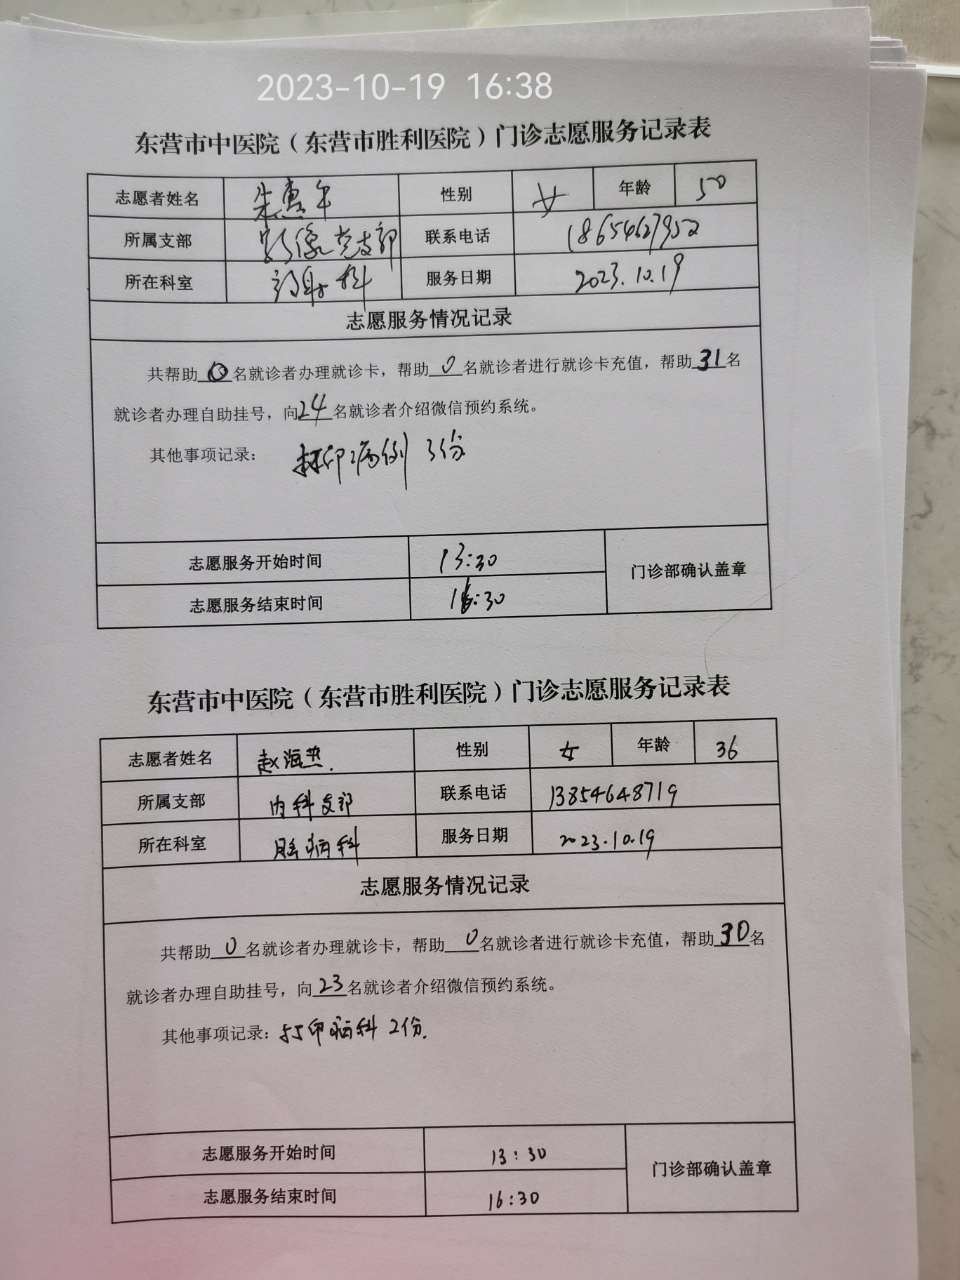 2023-10-19 16:38
东营市中医院（东营市胜利医院）门诊志愿服务记录表
志愿者姓名 朱惠年 性别 女 年龄 50
所属支部 影像党支部 联系电话 18654627952
所在科室 放射科 服务日期 2023.10.19
志愿服务情况记录
共帮助0名就诊者办理就诊卡，帮助0名就诊者进行就诊卡充值，帮助31名
就诊者办理自助挂号，向24名就诊者介绍微信预约系统。
其他事项记录： 打印病例 3份
志愿服务开始时间 13:30
门诊部确认盖章
志愿服务结束时间 16:30
东营市中医院（东营市胜利医院）门诊志愿服务记录表
志愿者姓名 赵海燕. 性别 女 年龄 36
所属支部 内科支部 联系电话 13854648719
所在科室 脑病科 服务日期 2023.10.19
志愿服务情况记录
共帮助0名就诊者办理就诊卡，帮助0名就诊者进行就诊卡充值，帮助30名
就诊者办理自助挂号，向23名就诊者介绍微信预约系统。
其他事项记录：打印病科 2份.
志愿服务开始时间 13:30
门诊部确认盖章
志愿服务结束时间 16:30